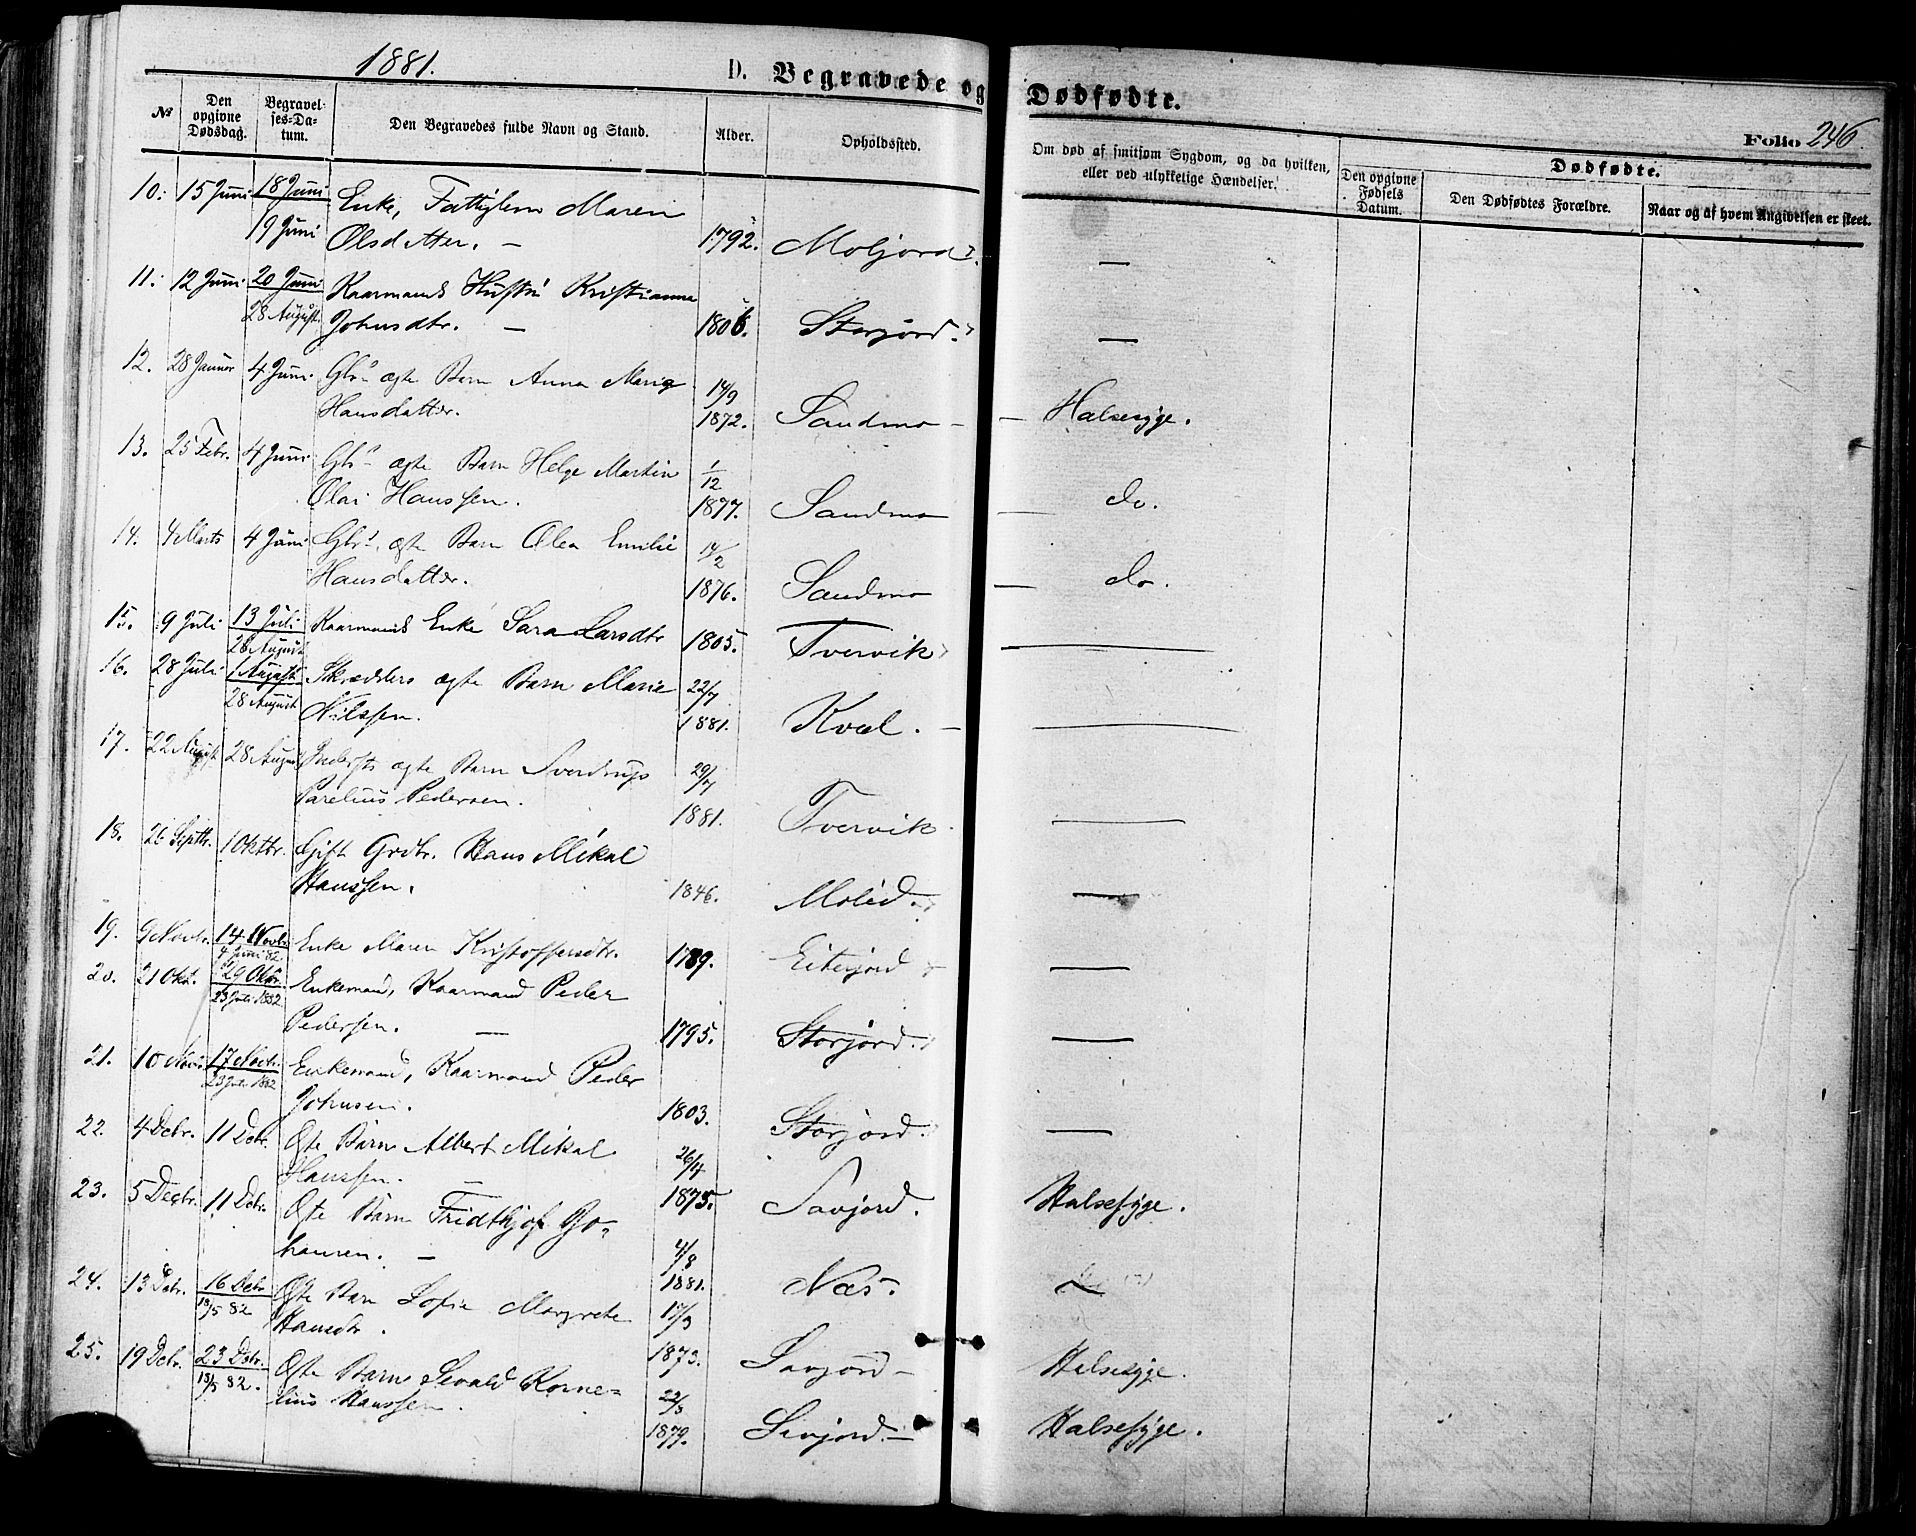 1881.
D. Begravede og Dødfødte.
Folio 246.
№
Den opgivne Dødsdag.
Begravelses-Datum.
Den Begravedes fulde Navn og Stand.
Alder.
Opholdssted.
Om død af smitsom Sygdom, og da hvilken, eller ved ulykkelige Hændelser.
Dødfødte.
Den opgivne Fødsels Datum.
Den Dødfødtes Forældre.
Naar og af hvem Angivelsen er skeet.
10. 15 Juni 18 Juni Enke, Fattiglem Maren
19 Juni Olsdatter. — 1792. Moljord. —
11. 12 Juni 20 Juni Kaarmands Hustru Kristianna
28 August Johnsdtr. — 1806. Storjord. —
12. 28 Januar 4 Juni Gbr. ægte Barn Anna Maria 14/9
Hansdatter. 1872. Sandmo — Halsesyge.
13. 25 Febr. 4 Juni Gbr. ægte Barn Helge Martin 1/12
Olai Hanssen. 1877. Sandmo — do.
14. 4 Marts 4 Juni Gbr. ægte Barn Olea Emilie 14/2
Hansdatter. 1876. Sandmo — do.
15. 9 Juli 13 Juli Kaarmands Enke Sara Larsdtr 1805. Tvervik —
28 August
16. 28 Juli 1 August Skrædders ægte Barn Marie 22/7
28 August Nilssen. 1881. Kvæl. —
17. 22 August 28 August Indersts ægte Barn Sverdrup 29/7
Parelius Pedersen. 1881. Tvervik. —
18. 26 Septbr. 1 Oktbr. Gift Grdbr. Hans Mikal
Hanssen. 1846. Molid. —
19. 9 Novbr. 14 Novbr. Enke Maren Kristoffersdtr. 1789. Eiterjord —
4 Juni 82
20. 21 Okt. 29 Oktbr. Enkemand, Kaarmand Peder
23 Juli 1882 Pedersen. — 1795. Storjord. —
21. 10 Nov. 17 Novbr. Enkemand, Kaarmand Peder
23 Juli 1882 Johnsen. 1803. Storjord. —
22. 4 Debr. 11 Debr. Ægte Barn Albert Mikal 26/4
Hanssen. — 1875. Savjord. Halsesyge.
23. 5 Decbr. 11 Debr. Ægte Barn Fridthjof Jo-
hansen. — 4/8 1881. Næs. —
24. 13 Debr. 16 Debr. Ægte Barn Sofie Margrete 17/3
18/5 82 Hansdtr. 1873. Savjord — Halsesyge.
25. 19 Debr. 23 Debr. Ægte Barn Sevald Korne-
18/5 82. lius Hanssen. 22/3 1879. Savjord — Halsesyge.